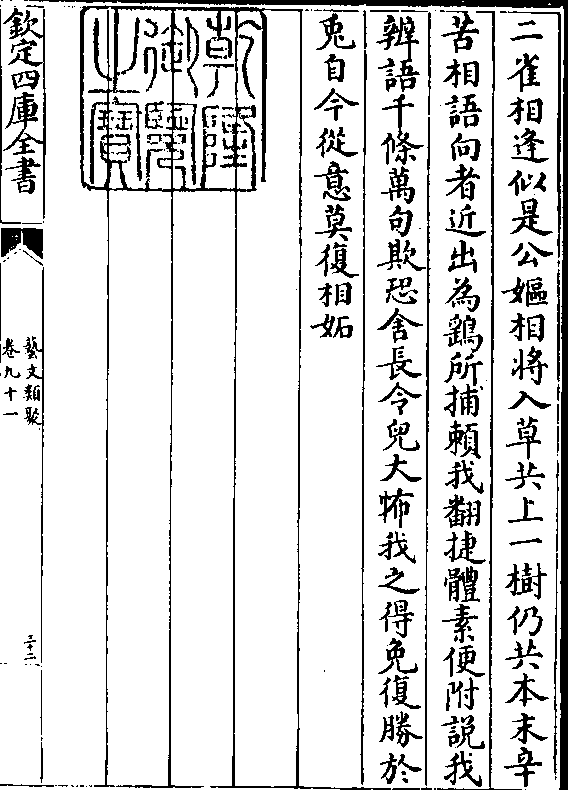 二雀相逢似是公嫗相将入草共上一樹仍共本末辛
苦相語向者近出為鷂所捕賴我翻捷體素便附說我
辨語千條萬句欺恐舎長令兒大怖我之得免復勝於
兎自今從意莫復相妬
乾隆
御覽
之寶
欽定四庫全書
藝文類聚
卷九十一
三十二